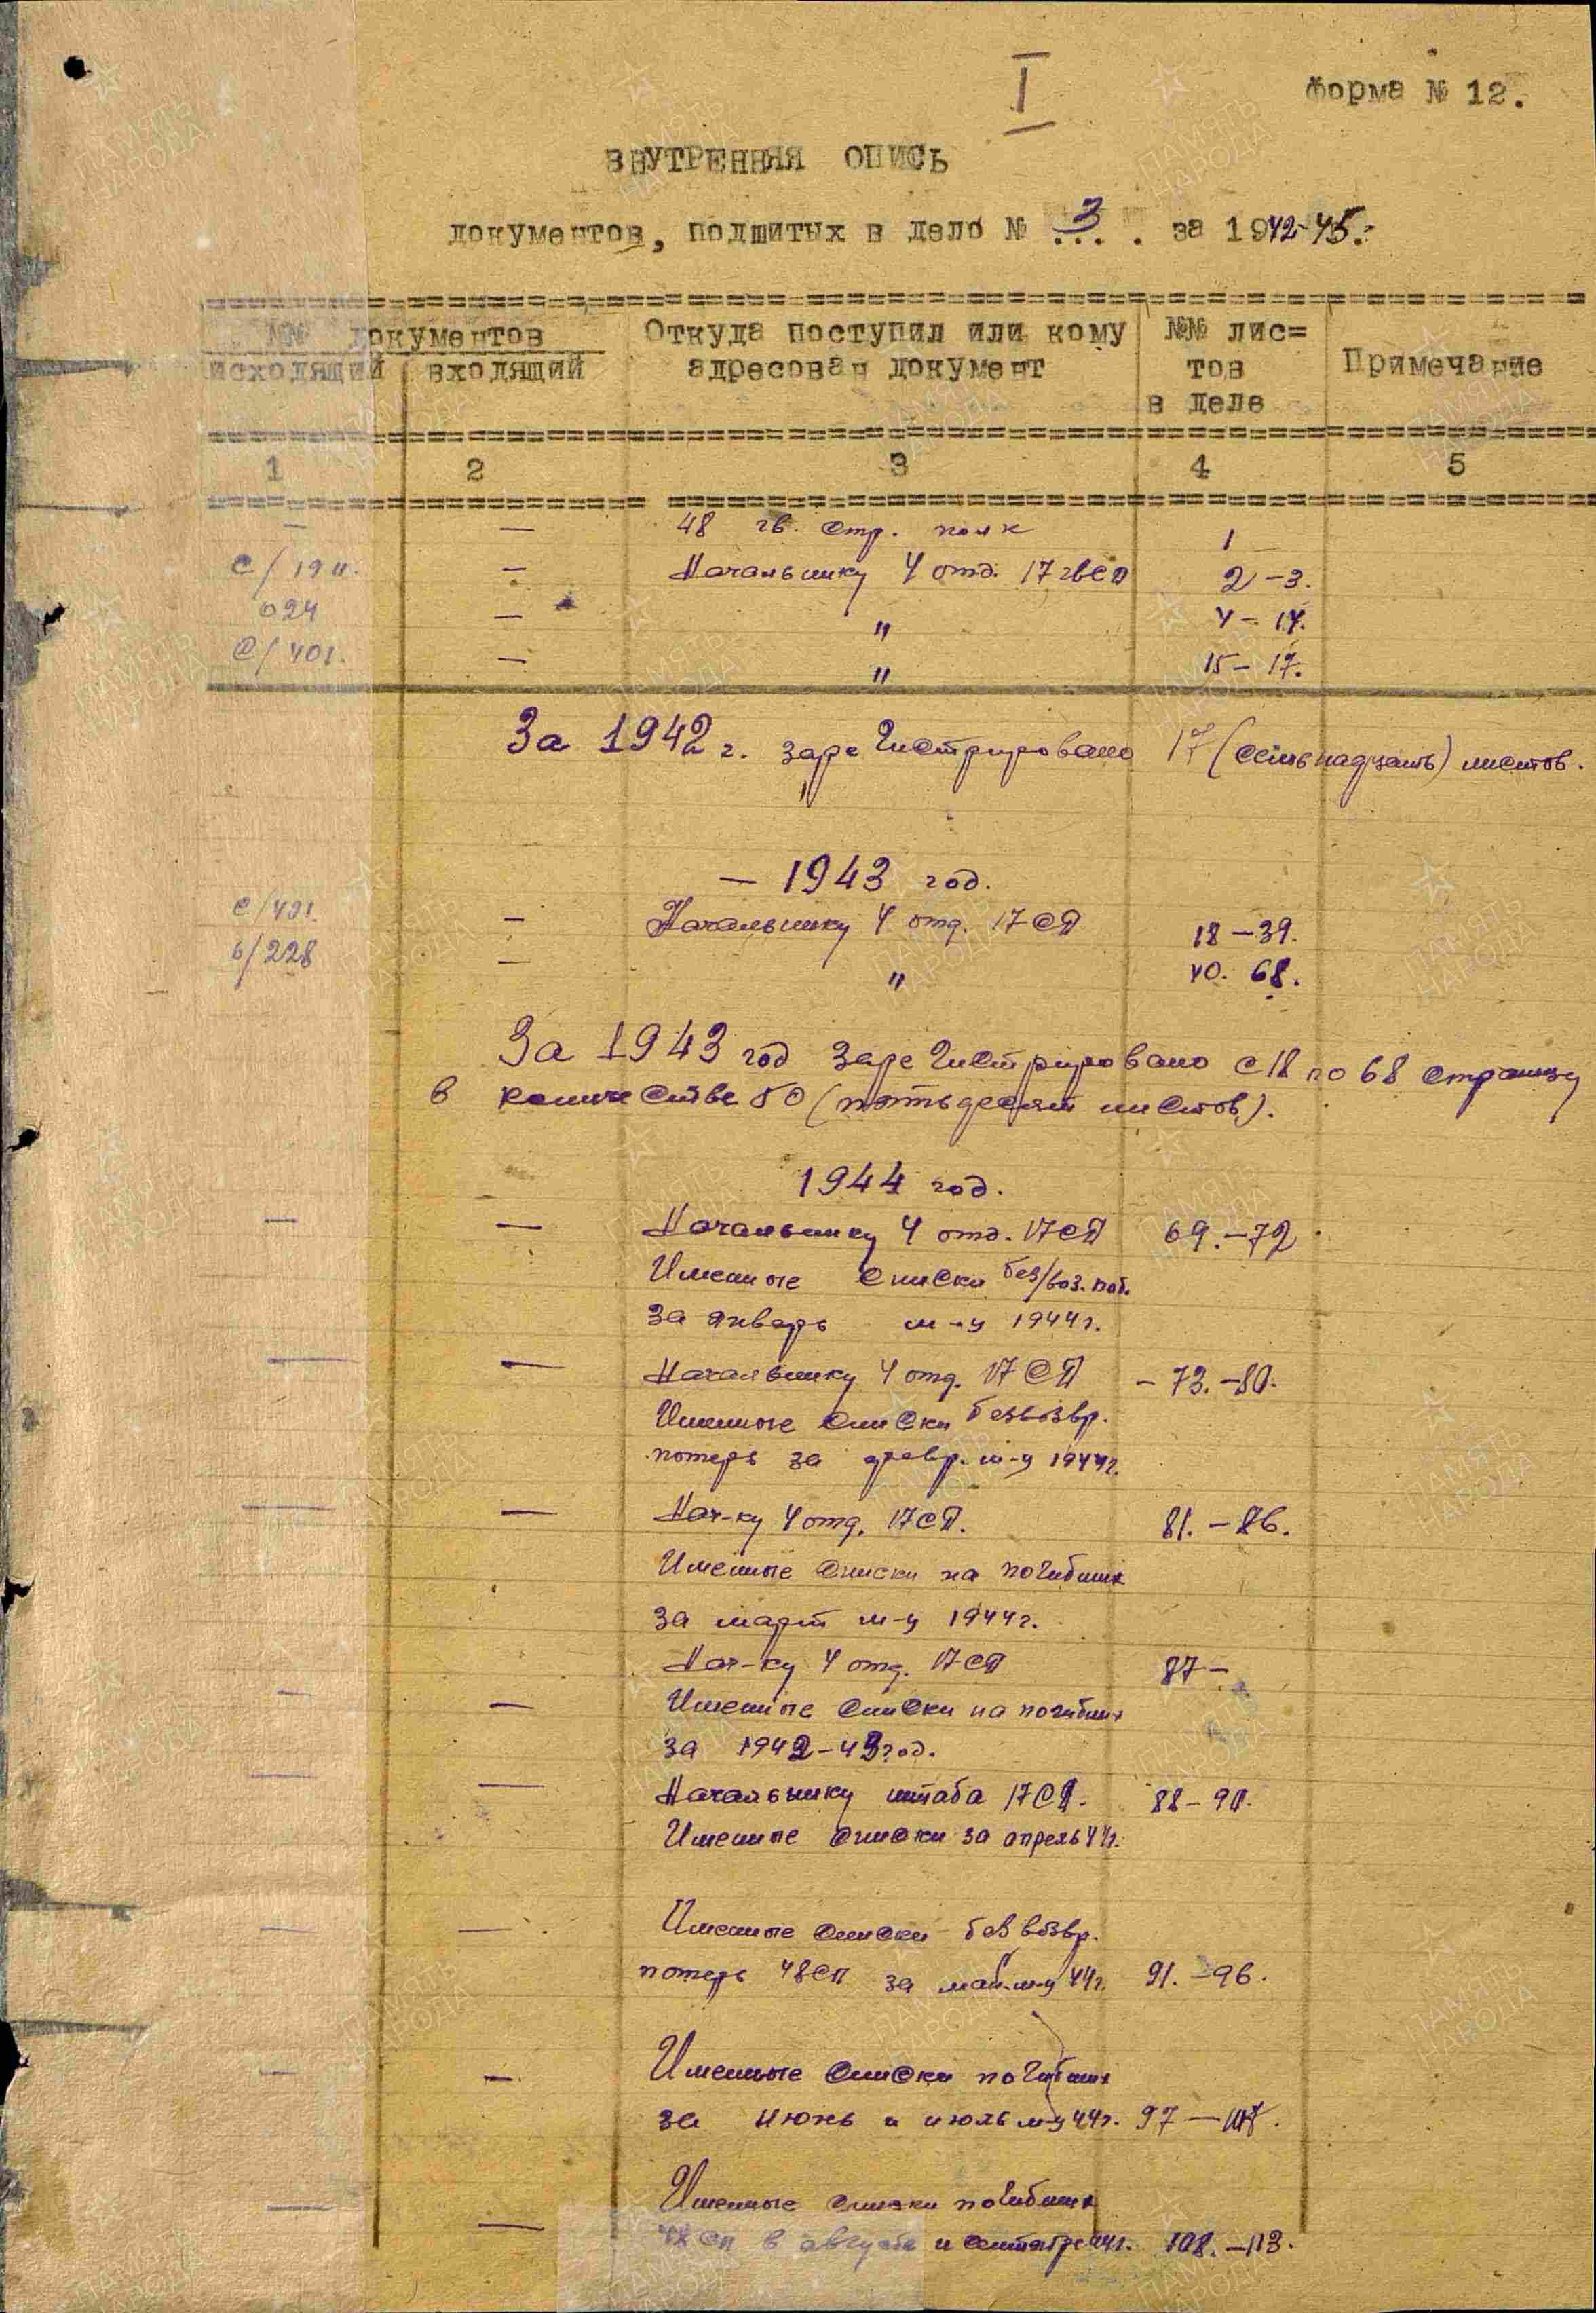 I
Форма № 12.
ВНУТРЕННЯЯ ОПИСЬ
документов, подшитых в дело № 3 . за 1942-45.
№№ документов
исходящий входящий
Откуда поступил или кому
адресован документ
№№ лис=
тов
в деле
Примечание
1 2 3 4 5
— — 48 гв. стр. полк 1
— Начальнику 4 отд. 17 гвсд 2-3.
024 — " 4-14.
С/401. — " 15-17.
За 1942 г. зарегистрировано 17 (семьнадцать) листов.
— 1943 год.
С/421. — Начальнику 4 отд. 17 СД 18-39.
6/228 — " 40. 68.
За 1943 год зарегистрировано с 18 по 68 страницу
в количестве 50 (пятьдесят листов).
1944 год.
— — Начальнику 4 отд. 17 СД 69.-72
Именные списки без/воз. пот.
за январь м-ц 1944г.
— — Начальнику 4 отд. 17 СД - 73.-80.
Именные списки безвозвр.
потерь за февр. м-ц 1944г.
— — Нач-ку 4 отд. 17 СД. 81.-86.
Именные списки на погибших
за март м-ц 1944г.
Нач-ку 4 отд. 17 СД 87-
— — Именные списки на погибших
за 1942-43 год.
— — Начальнику штаба 17 СД. 88-90.
Именные списки за апрель 44г.
— — Именные списки безвозвр.
потерь 48 СП за май м-ц 44г. 91.-96.
— — Именные списки погибших
за июнь и июль м-ц 44г. 97-107.
— — Именные списки погибших
48 СП в августе и сентябре 44г. 108.-113.
ПАМЯТЬ НАРОДА